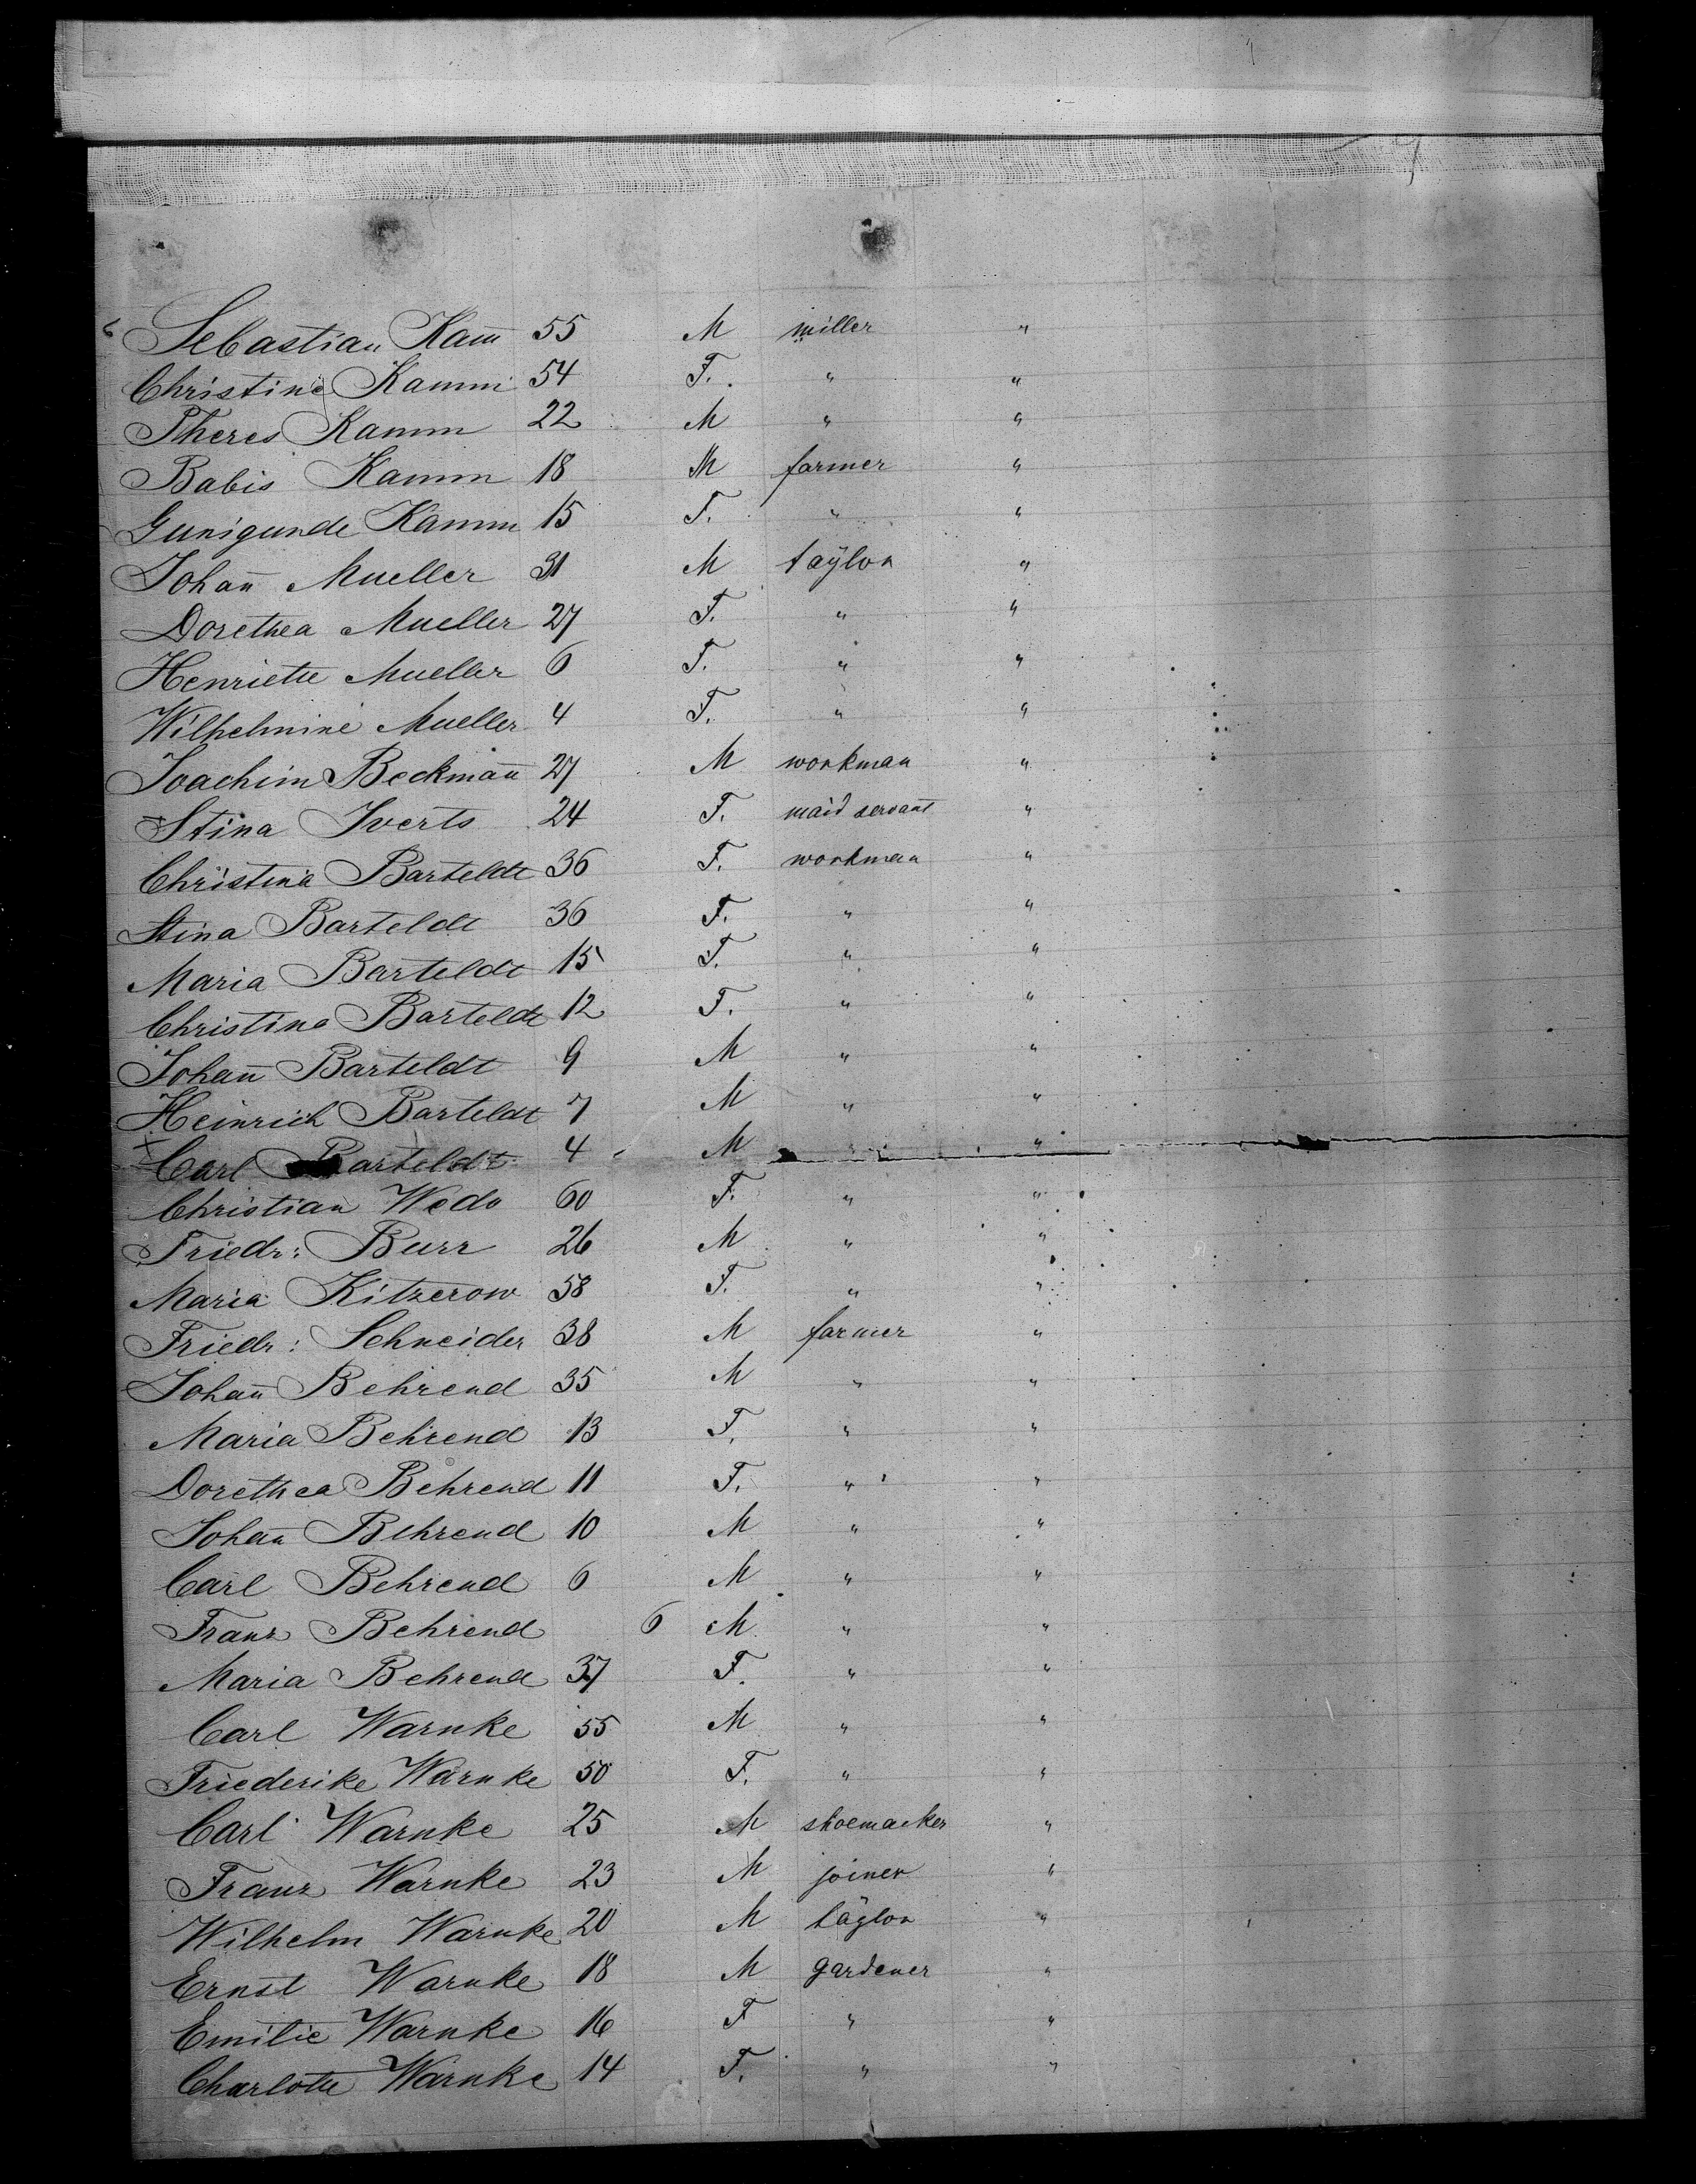 Sebastian Kam̅ 55 M miller "
Christine Kamm 54 F. " "
Theres Kamm 22 M " "
Babis Kamm 18 M farmer "
Gunigunde Kamm 15 F. " "
Johan̅ Mueller 31 M taÿlor "
Dorethea Mueller 27 F. " "
Henriette Mueller 6 F. " "
Wilhelmine Mueller 4 F. " "
Joachim Beckman̅ 27 M workman "
Stina Iverts 24 F. maid servant "
Christina Barteldt 36 F. workman "
Stina Barteldt 36 F. " "
Maria Barteldt 15 F. " "
Christina Barteldt 12 F. " "
Johan̅ Barteldt 9 M " "
Heinrich Barteldt 7 M " "
Carl Barteldt 4 M " "
Christian Wedo 60 F. " "
Friedr: Burr 26 M " "
Maria Kitzerow 58 F. " "
Friedr: Schneider 38 M farmer "
Johan̅ Behrend 35 M " "
Maria Behrend 13 F. " "
Dorethea Behrend 11 F. " "
Johan̅ Behrend 10 M " "
Carl Behrend 6 M " "
Franz Behrend 6 M " "
Maria Behrend 37 F. " "
Carl Warnke 55 M " "
Friederike Warnke 50 F. " "
Carl Warnke 25 M shoemacker "
Franz Warnke 23 M joiner "
Wilhelm Warnke 20 M taÿlor "
Ernst Warnke 18 M gardener "
Emilie Warnke 16 F " "
Charlotte Warnke 14 F. " "